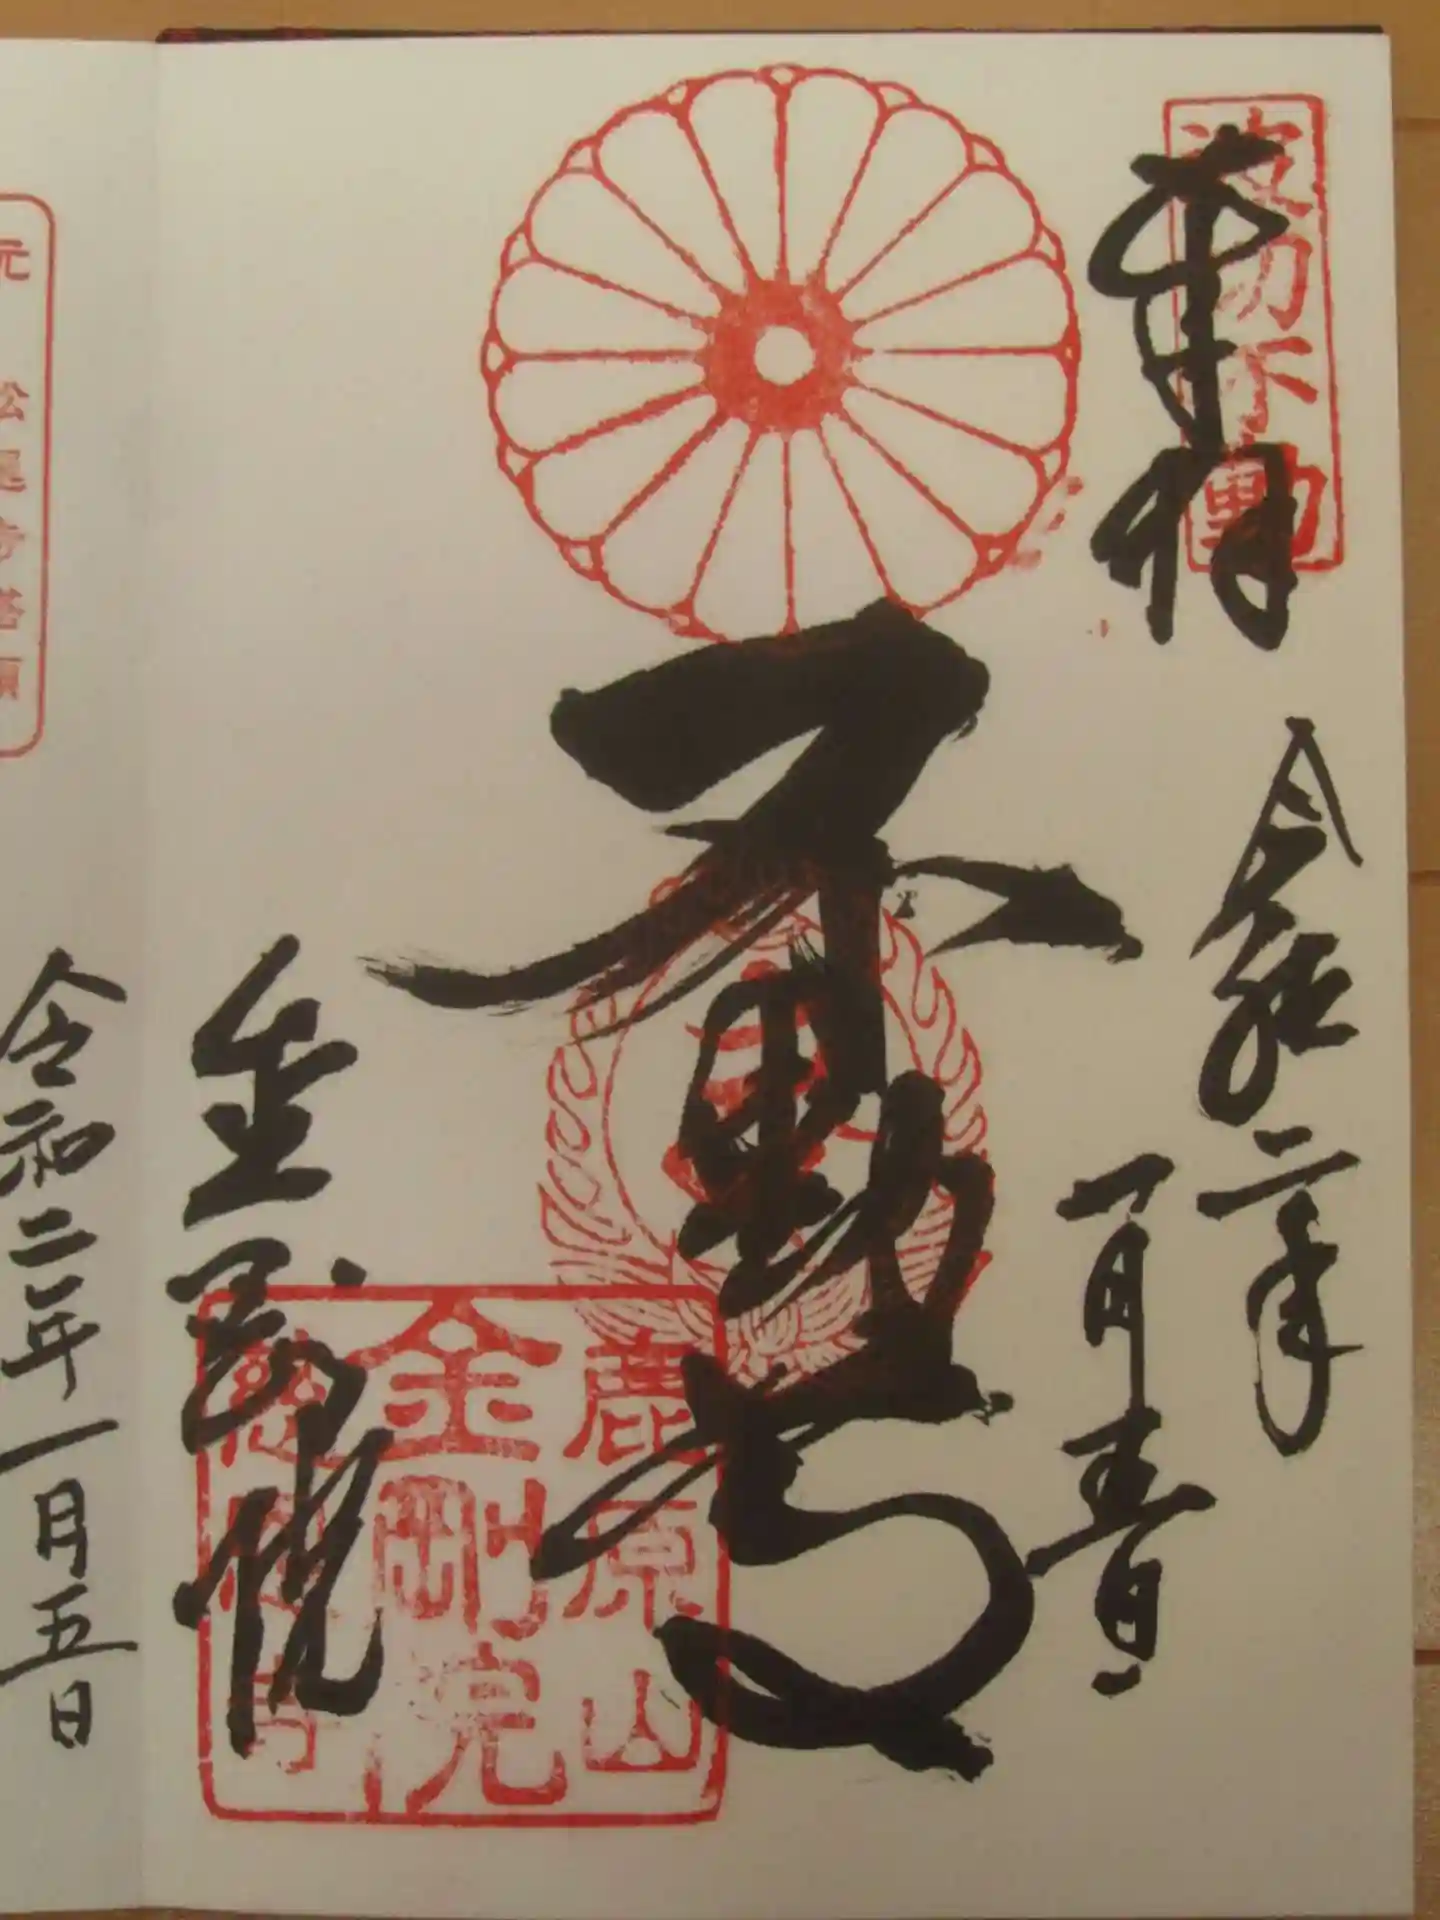 波切不動
奉拝
令和二年
一月五日
不動尊
鹿原山
金剛院
慈恩寺
金剛院
元 松尾寺塔頭
令和二年一月五日